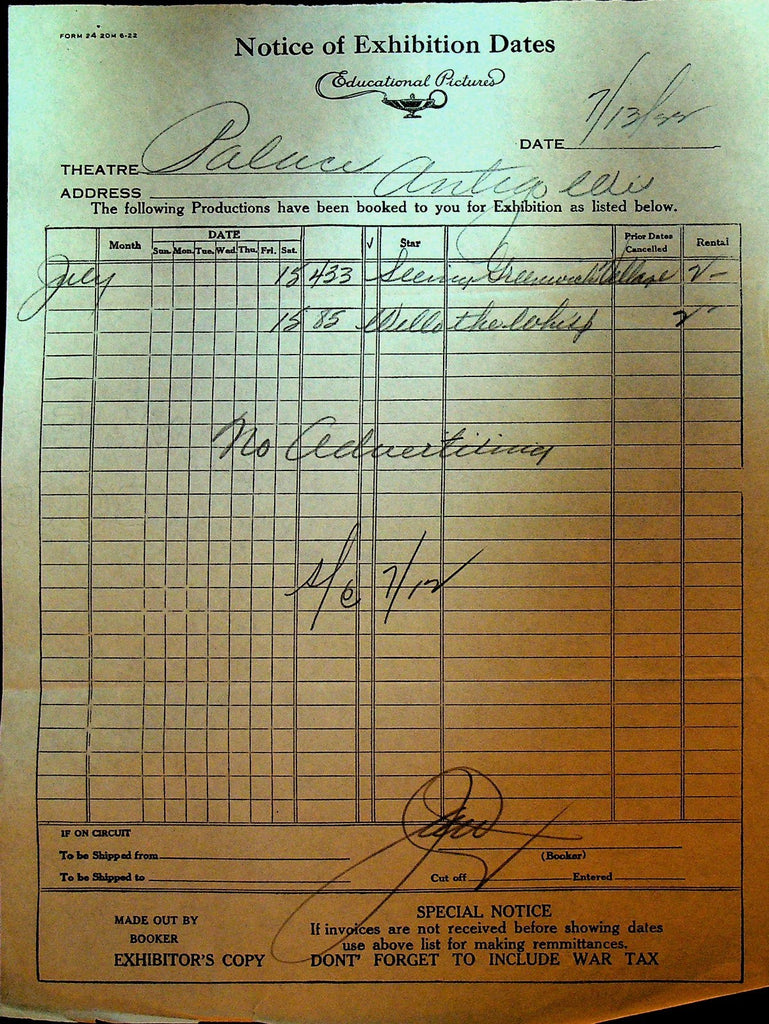 FORM 24 20M 6-22
Notice of Exhibition Dates
Educational Pictures
DATE 7/13/22
THEATRE Palace
ADDRESS Antigo Wis
The following Productions have been booked to you for Exhibition as listed below.
Month DATE √ Star Prior Dates Cancelled Rental
Sun. Mon. Tue. Wed. Thu. Fri. Sat.
July 15 433 Seeing Greenwich Village 2-
15 85 Will o the Whisp 2-
No Advertising
s/c 7/12
IF ON CIRCUIT
To be Shipped from (Booker)
To be Shipped to Cut off Entered
MADE OUT BY
BOOKER
EXHIBITOR'S COPY
SPECIAL NOTICE
If invoices are not received before showing dates
use above list for making remmittances.
DONT' FORGET TO INCLUDE WAR TAX